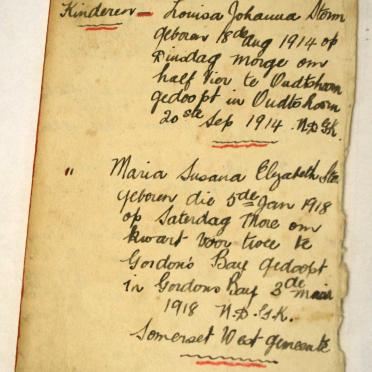 Kinderen — Louisa Johanna Storm
geboren 18de Aug 1914 op
Dinsdag morge om
half vier te Oudtshoorn
gedoopt in Oudtshoorn
20ste Sep 1914 N.D.G.K.
" Maria Susana Elyzabeth
geboren die 5de Jan 1918
op Saterdag More om
kwart voor twee te
Gordon's Bay gedoopt
in Gordons Bay 3de
1918 N.D.G.K.
Somerset West gemeente